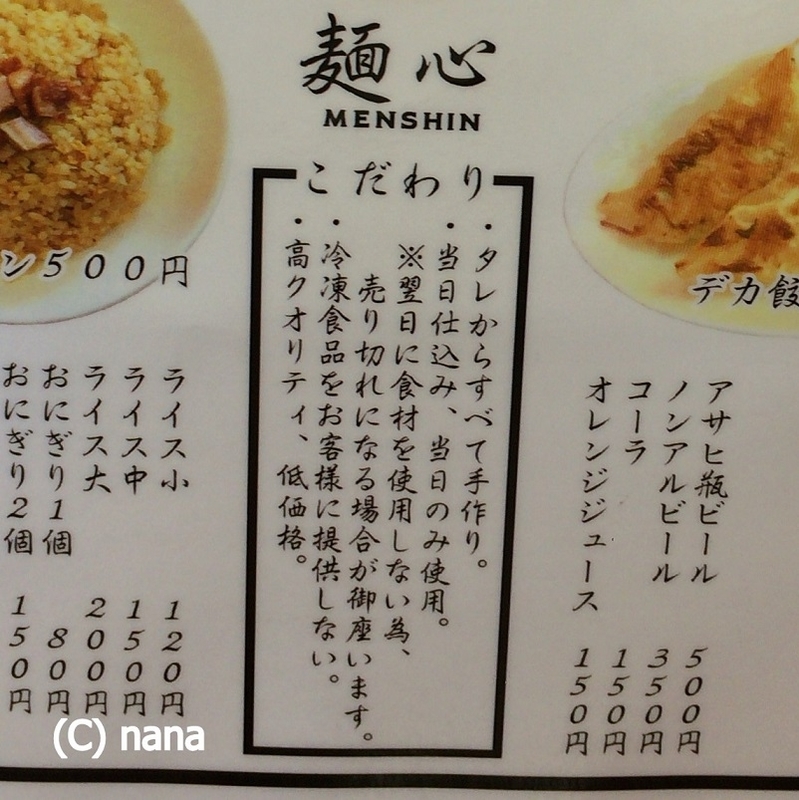 麺心
MENSHIN
こだわり
・タレからすべて手作り。
・当日仕込み、当日のみ使用。
※翌日に食材を使用しない為、
売り切れになる場合が御座います。
・冷凍食品をお客様に提供しない。
・高クオリティ、低価格。
デカ餃
アサヒ瓶ビール 500円
ノンアルビール 350円
コーラ 150円
オレンジジュース 150円
ン500円
ライス小 120円
ライス中 150円
ライス大 200円
おにぎり1個 80円
おにぎり2個 150円
(C) nana